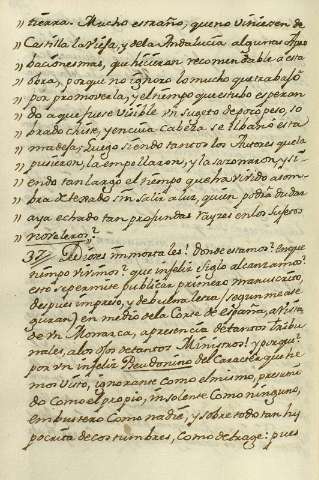 " tierra. Mucho estraño, que no viniesen de
" Castilla la Vieja, y de la Andalucia algunas Apro
" baciones mas, que hicieran recomendable a esta
" obra, porque no ignoro lo mucho que trabajó
" por promoverla, y el tiempo que estubo esperan
" do a que fuese visible un sugeto de poco peso, so
" brado chiste, y en cuia Cabeza se libano esta
" madeja; luego siendo tantos los Autores que la
" pusieron, la empollaron, y la sazonaron, y si
" endo tan largo el tiempo que ha vivido a som
" bra de texado sin salir a luz, quien podrá dudar
" aya echado tan profundas rayces en los sujetos
" noveleros?
37 Dioses inmortales! donde estamos? en que
tiempo vivimos? que infeliz siglo alcanzamos?
esto se permite publicar primero manuscrito,
despues impreso, y de buena letra (segun me ase
guran) en medio de la Corte de españa, a vista
de un Monarca, a presencia de tantos Tribu
nales, a los ojos de tantos Ministros! y porque?
por un infeliz Pseudonino del Caracter que he
mos visto, ignorante como el mismo, presumi
do como el propio, insolente como ninguno,
embustero como nadie, y sobre todo tan hy
pocrita de costumbres, como de trage: pues